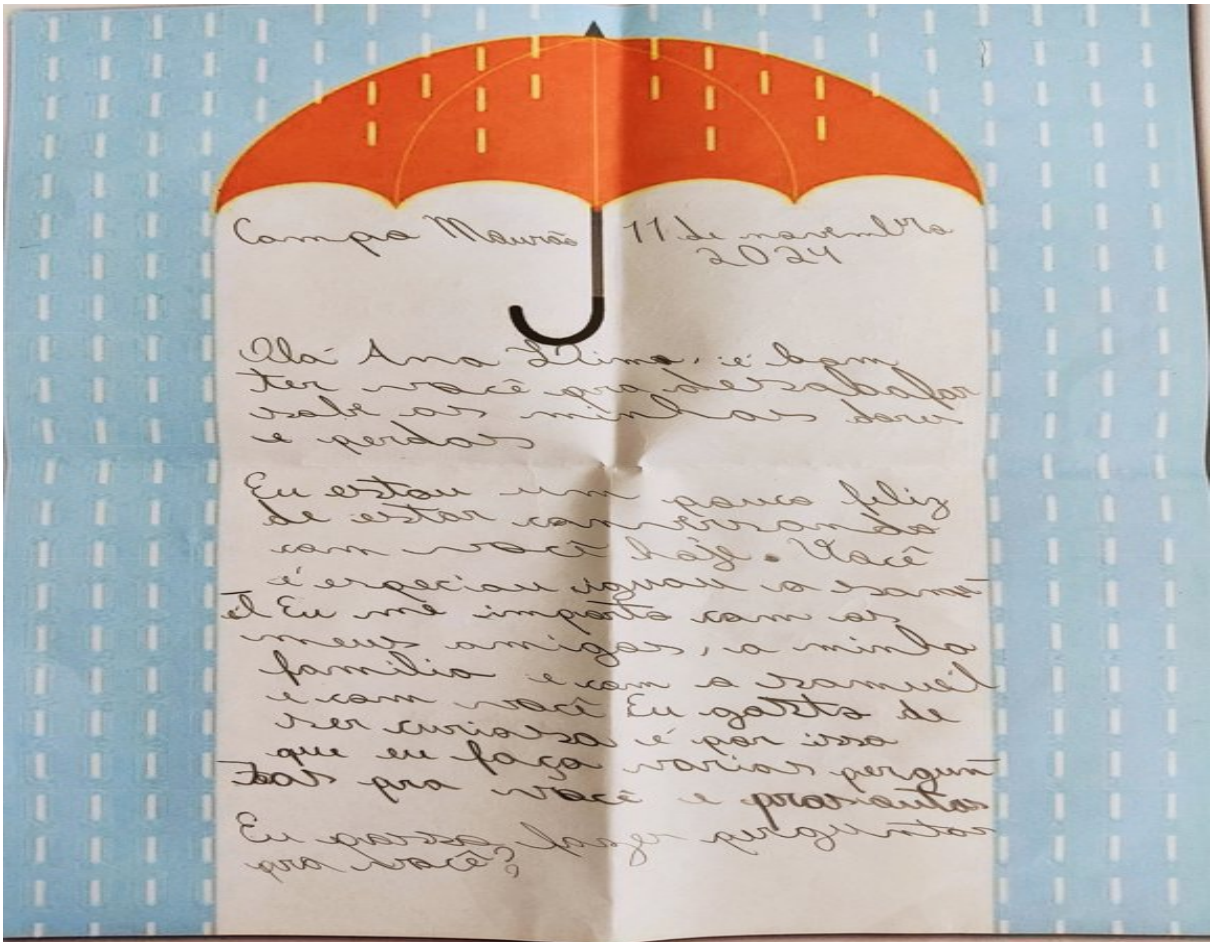 Campo Mourão 11 de novembro
2024
Olá Ana é bom
ter você pra desabafar
sobr as minhas dores
e perdas
Eu estou um pouco feliz
de estar conversando
com você hoje. Você
é especiau iguau a samu
él Eu me importo com os
meus amigos, a minha
família e com o samuél
e com você Eu gosto de
ser curiosa é por isso
que eu faço varias pergun
tas pra você e
Eu posso fazer perguntas
pra você?